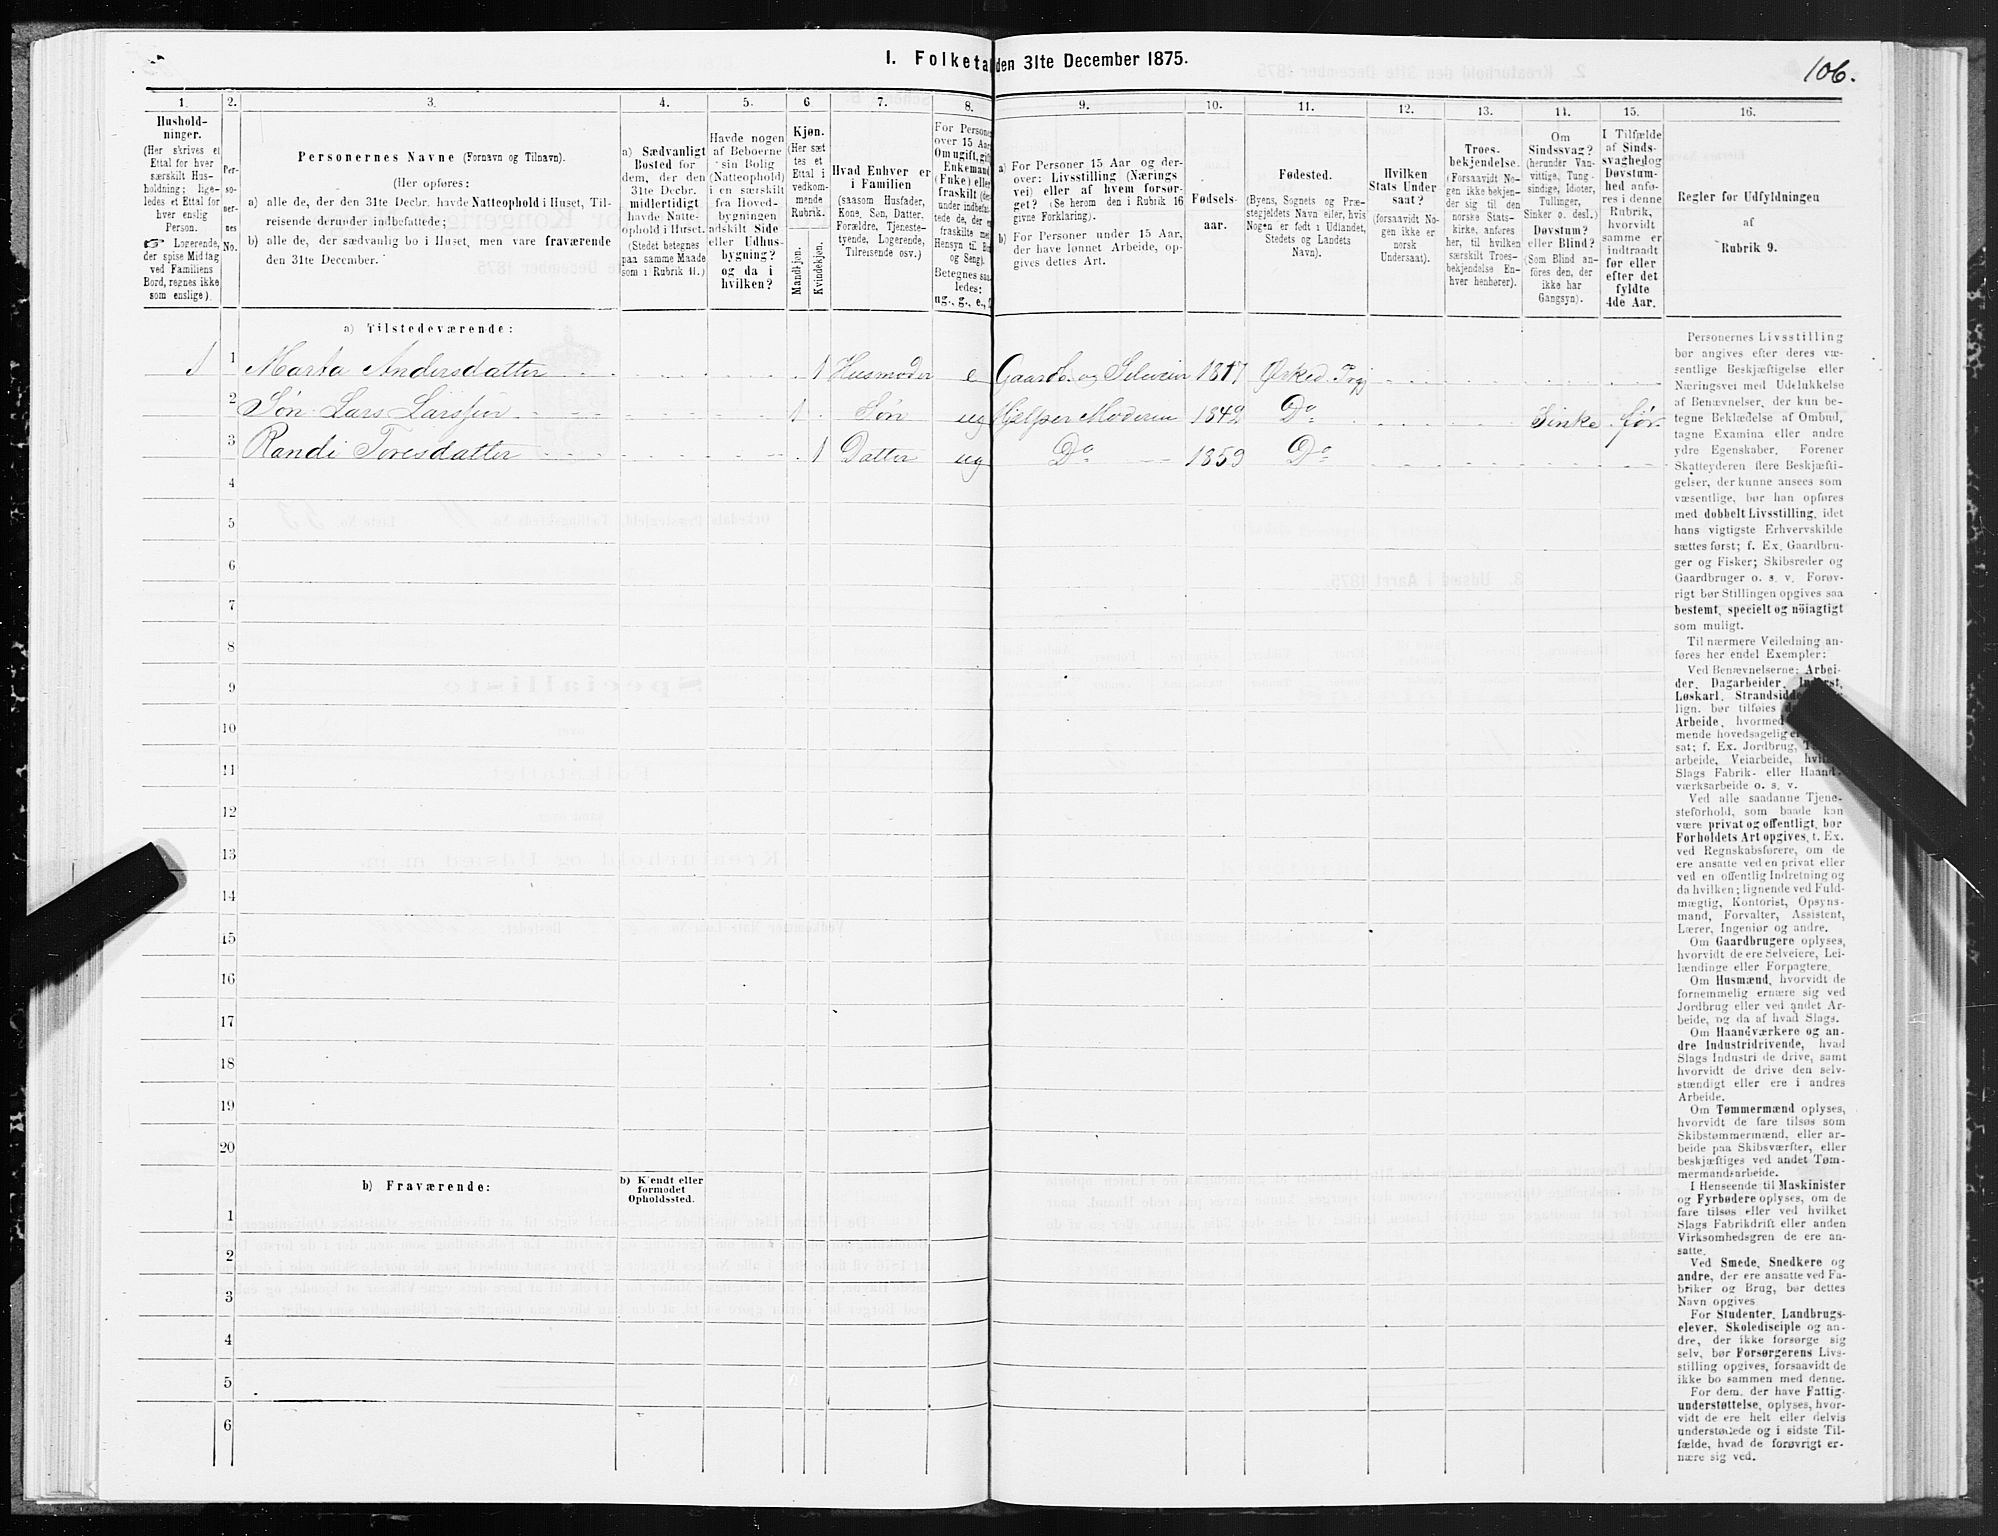 I. Folketal den 31te December 1875.
106.
1. 2. 3. 4. 5. 6 7. 8. 9. 10. 11. 12. 13. 14. 15. 16.
Hushold-
ninger.
(Her skrives et
Ettal for hver
særskilt Hus-
holdning; lige-
ledes et Ettal for
hver enslig
Person.
☞ Logerende,
der spise Midtag
ved Familiens
Bord, regnes ikke
som enslige).
Per-
so-
ner-
nes
No.
Personernes Navne (Fornavn og Tilnavn).
(Her opføres:
a) alle de, der den 31te Decbr. havde Natteophold i Huset, Til-
reisende derunder indbefattede;
b) alle de, der sædvanlig bo i Huset, men vare fraværende
den 31te December.
a) Sædvanligt
Bosted for
dem, der den
31te Decbr.
midlertidigt
havde Natte-
ophold i Huset.
(Stedet betegnes
paa samme Maade
som i Rubrik 11.)
Havde nogen
af Beboerne
sin Bolig
(Natteophold)
i en særskilt
fra Hoved-
bygningen
adskilt Side
eller Udhus-
bygning?
og da i
hvilken?
Kjøn.
(Her sæt
tes et
Ettal i
vedkom-
mende
Rubrik.
Mandkjøn.
Kvindekjøn.
Hvad Enhver er
i Familien
(saasom Husfader,
Kone, Søn, Datter,
Forældre, Tjeneste-
tyende, Logerende,
Tilreisende osv.)
For Persone
over 15 Aar
Om ugift, gift
Enkemand
(Enke) eller
fraskilt (der
under indbefat-
tede de, der e
fraskilte med
Hensyn til Bo
og Seng).
Betegnes saa
ledes:
ug., g., e.,
a) For Personer 15 Aar og der-
over: Livsstilling (Nærings
vei) eller af hvem forsør-
get? (Se herom den i Rubrik 16
givne Forklaring).
b) For Personer under 15 Aar,
der have lønnet Arbeide, op-
gives dettes Art.
Fødsels-
aar.
Fødested.
(Byens, Sognets og Præ-
stegjeldets Navn eller, hvis
Nogen er født i Udlandet,
Stedets og Landets
Navn).
Hvilken
Stats Under
saat?
(forsaavidt No-
gen ikke er
norsk
Undersaat).
Troes-
bekjendelse.
(Forsaavidt No-
gen ikke bekjen-
der sig til den
norske Stats-
kirke, anføres
her, til hvilken
særskilt Troes-
bekjendelse En-
hver henhører).
Om
Sindssvag?
(herunder Van-
vittige, Tung-
sindige, Idioter,
Tullinger,
Sinker o. desl.)
Døvstum?
eller Blind?
(Som Blind an-
føres den, der
ikke har
Gangsyn).
I Tilfælde
af Sinds-
svaghed og
Døvstum-
hed anfø-
res i denne
Rubrik,
hvorvidt
samme er
indtraadt
før eller
efter det
fyldte
4de Aar.
Regler for Udfyldningen
af
Rubrik 9.
a) Tilstedeværende:
1 1 Marta Andersdatter 1 Husmoder e Gaardb. og Selveier 1817 Ørked. Prgj
2 Søn Lars Larssen 1 Søn ug Hjelper Moderen 1842 Do Sinke før
3 Randi Toresdatter 1 Datter ug Do 1859 Do
4
5
6
7
8
9
10
11
12
13
14
15
16
17
18
19
20
b) Fraværende:
b) Kjendt eller
formodet
Opholdssted.
1
2
3
4
5
6
Personernes Livsstilling
bør angives efter deres væ-
sentlige Beskjæftigelse eller
Næringsvei med Udelukkelse
af Benævnelser, der kun be-
tegne Beklædelse af Ombud,
tagne Examina eller andre
ydre Egenskaber. Forener
Skatteyderen flere Beskjæfti-
gelser, der kunne ansees som
væsentlige, bør han opføres
med dobbelt Livsstilling, idet
hans vigtigste Erhvervskilde
sættes først; f. Ex. Gaardbru-
ger og Fisker; Skibsreder og
Gaardbruger o. s. v. Forøv-
rigt bør Stillingen opgives saa
bestemt, specielt og nöiagtigt
som muligt.
Til nærmere Veiledning an-
føres her endel Exempler:
Ved Benævnelserne: Arbei-
der, Dagarbeider, Inderst,
Løskarl, Strandsidder
lign. bør tilføies
Arbeide, hvormed
mende hovedsagelig er
sat; f. Ex. Jordbrug,
arbeide, Veiarbeide,
Slags Fabrik- eller Haand-
værksarbeide o. s. v.
Ved alle saadanne Tjene-
steforhold, som baade kan
være privat og offentligt, bør
Forholdets Art opgives, t. Ex.
ved Regnskabsførere, om de
ere ansatte ved en privat eller
ved en offentlig Indretning og
da hvilken; lignende ved Fuld-
mægtig, Kontorist, Opsyns-
mand, Forvalter, Assistent,
Lærer, Ingeniør og andre.
Om Gaardbrugere oplyses,
hvorvidt de ere Selveiere, Lei-
lændinge eller Forpagtere.
Om Husmænd, hvorvidt de
fornemmelig ernære sig ved
Jordbrug eller ved andet Ar-
beide, og da af hvad Slags.
Om Haandværkere og an-
dre Industridrivende, hvad
Slags Industri de drive, samt
hvorvidt de drive den selv-
stændigt eller ere i andres
Arbeide.
Om Tømmermænd oplyses,
hvorvidt de fare tilsøs som
Skibstømmermænd, eller ar-
beide paa Skibsværfter, eller
beskjæftiges ved andet Tøm-
mermandsarbeide.
I Henseende til Maskinister
og Fyrbødere oplyses, om de
fare tilsøs eller ved hvilket
Slags Fabrikdrift eller anden
Virksomhedsgren de ere an-
satte.
Ved Smede, Snedkere og
andre, der ere ansatte ved Fa-
briker og Brug, bør dettes
Navn opgives.
For Studenter, Landbrugs-
elever, Skoledisciple og an-
dre, der ikke forsørge sig
selv, bør Forsørgerens Livs-
stilling opgives, forsaavidt de
ikke bo sammen med denne.
For dem, der have Fattig-
understøttelse, oplyses, hvor-
vidt de ere helt eller delvis
understøttede og i sidste Til-
fælde, hvad de forøvrigt er-
nære sig ved.